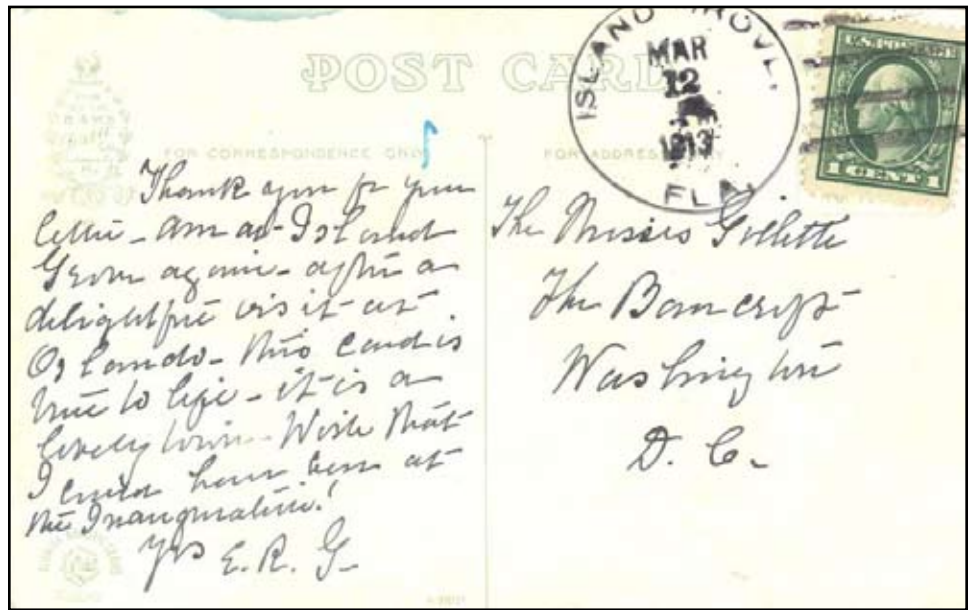 POST CARD
ISLAND GROVE,
MAR
12
1913
FLA.
1 CENT 1
FOR CORRESPONDENCE ONLY
FOR ADDRESS ONLY
Thank you for your
letter - Am at Island
Grove again - after a
delightful visit at
Orlando - This card is
true to life - it is a
lovely town - Wish that
I could have been at
the Inauguration!
Yrs E. R. G.
The Misses Gillette
The Bancroft
Washington
D. C.